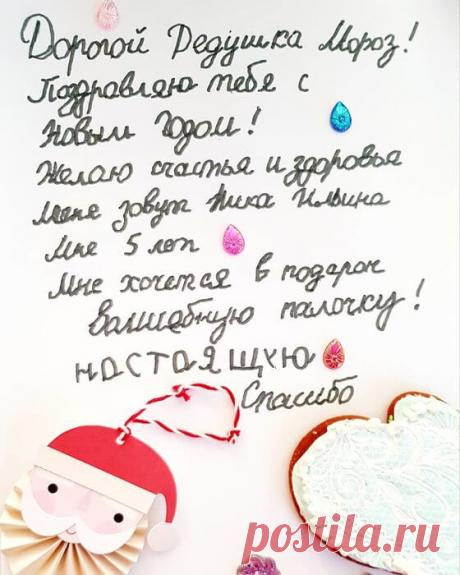 Дорогой Дедушка Мороз!
Поздравляю тебя с
Новым Годом!
Желаю счастья и здоровья
Меня зовут Ника Ильина
Мне 5 лет
Мне хочется в подарок
Валшебную палочку!
настаящую
Спасибо
postila.ru